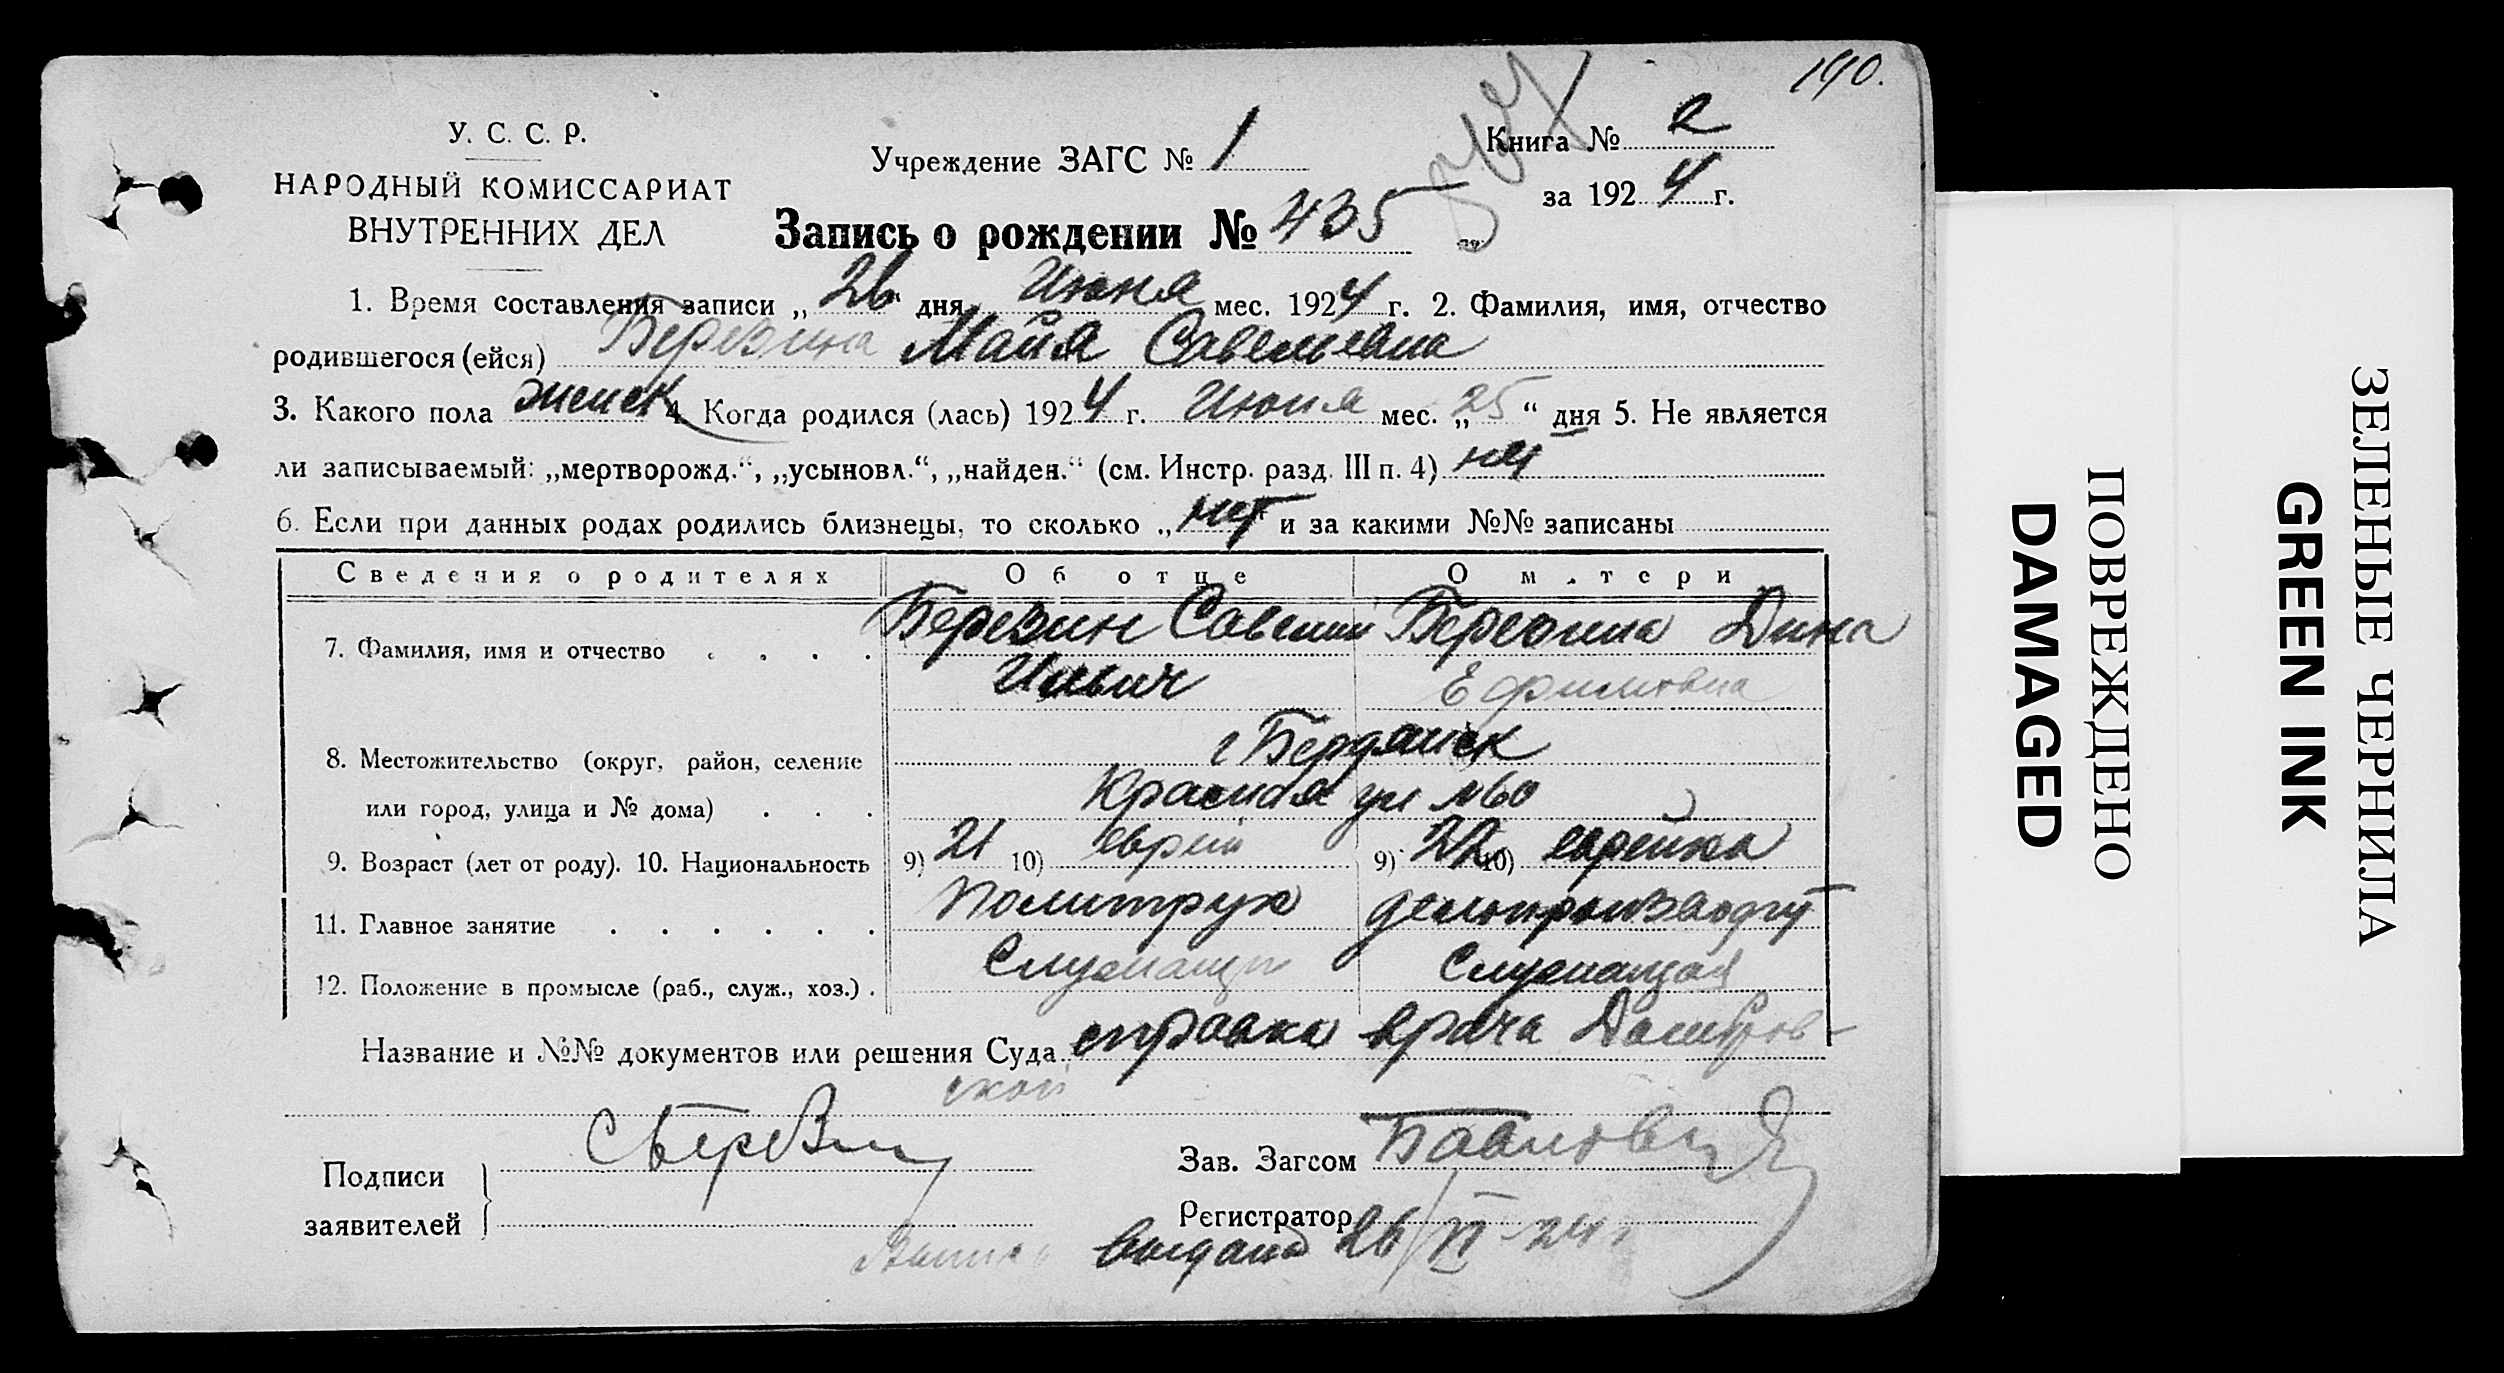 190.
У. С. С. Р.
НАРОДНЫЙ КОМИССАРИАТ
ВНУТРЕННИХ ДЕЛ
Учреждение ЗАГС № 1
Книга № 2
за 1924 г.
Запись о рождении № 435
1. Время составления записи „ 26 " дня Июня мес. 1924 г. 2. Фамилия, имя, отчество
родившегося (ейся) Березина Майя Савельевна
3. Какого пола женск 4. Когда родился (лась) 1924 г. Июня мес. „ 25 “ дня 5. Не является
ли записываемый: „мертворожд.“, „усыновл.“, „найден.“ (см. Инстр. разд. III п. 4) нет
6. Если при данных родах родились близнецы, то сколько „ нет и за какими №№ записаны
Сведения о родителях Об отце О матери
7. Фамилия, имя и отчество . . . . Березин Савелий Березина Дина
Ильич Ефимовна
8. Местожительство (округ, район, селение г Бердянск
или город, улица и № дома) . . . Красная ул №60
9. Возраст (лет от роду). 10. Национальность 9) 21 10) еврей 9) 22 10) еврейка
11. Главное занятие . . . . . . Политрук делопроизводит
12. Положение в промысле (раб., служ., хоз.) . Служащий Служащая
Название и №№ документов или решения Суда справка врача Домбров-
ской
Подписи
заявителей
СБерезин
Зав. Загсом
Регистратор
выдана 26/VI 24 г
ПОВРЕЖДЕНО
DAMAGED
ЗЕЛЕНЫЕ ЧЕРНИЛА
GREEN INK